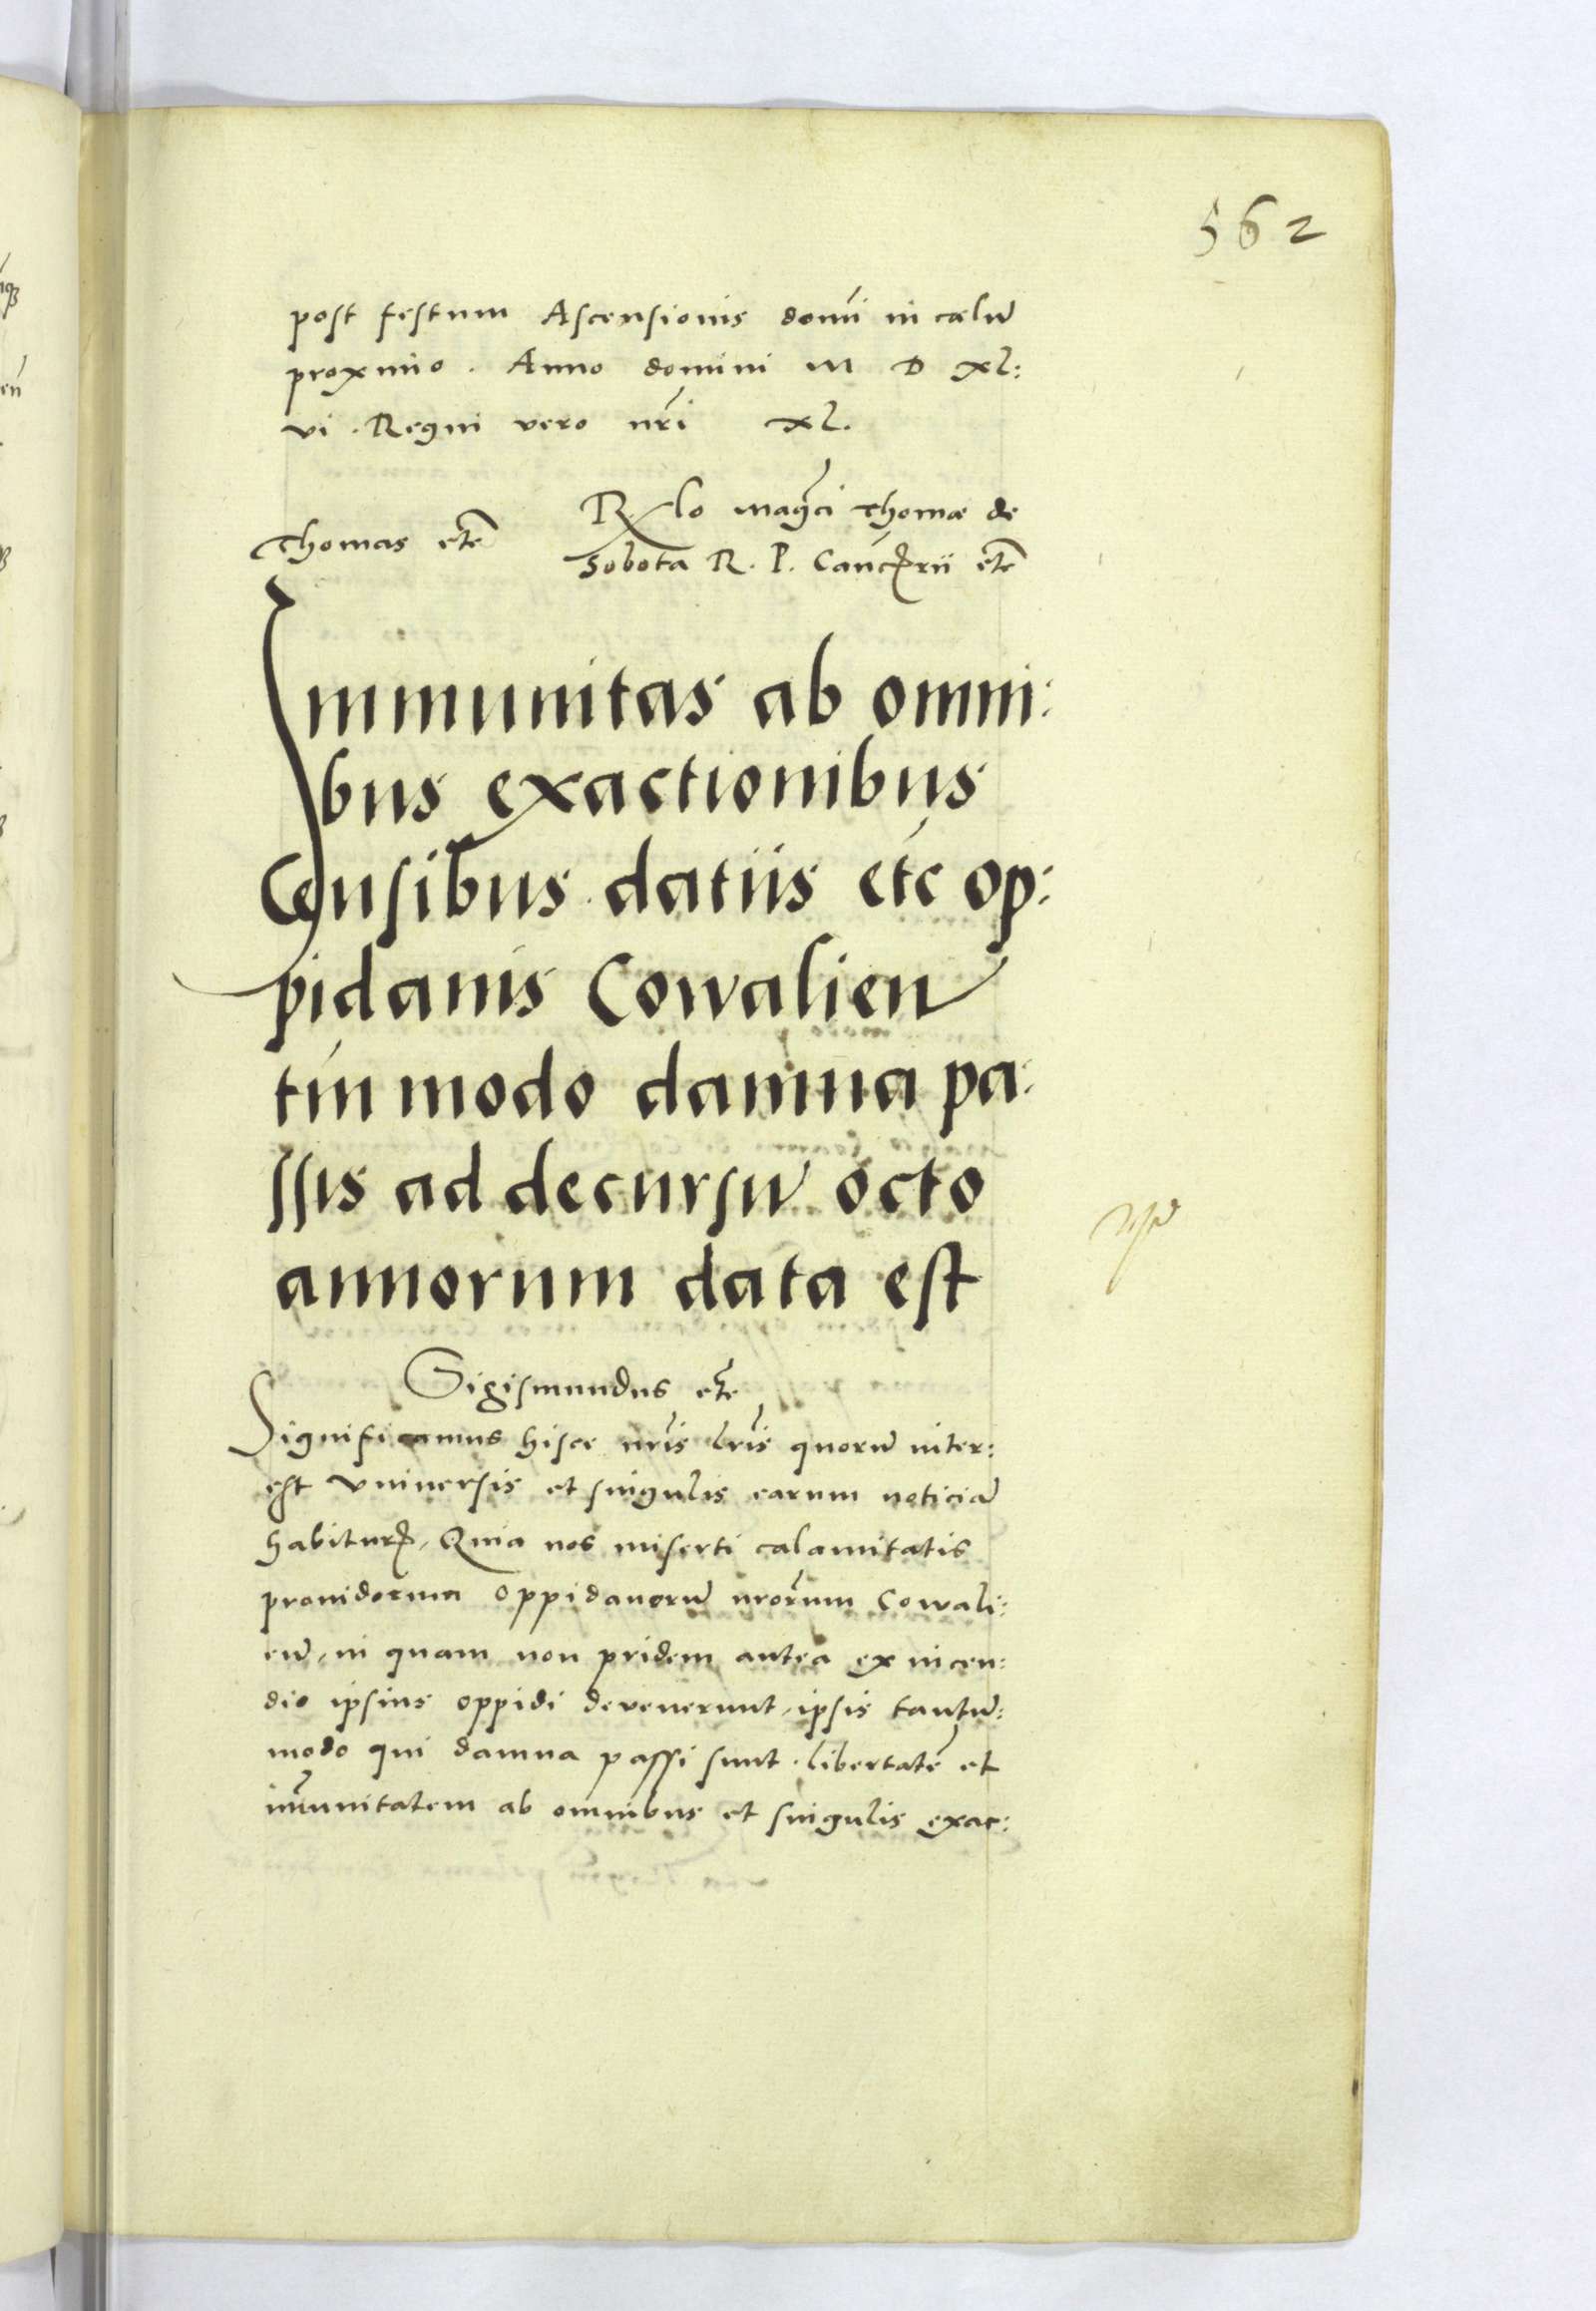 562
post festum Ascensionis domi in cælu
proximo. Anno domini M D XL:
vi. Regni vero nri XL.
Thomas etc
Rlo magci Thomæ de
Sobota R. P. Cancrii etc
Immunitas ab omni:
bus exactionibus
Censibus datiis etc op:
pidanis Cowalien
tm modo damna pa:
ssis ad decursu octo
annorum data est
Sigismundus etc
Significamus hisce nris lris quoru inter:
est vniuersis et singulis earum noticia
habitur, Quia nos miserti calamitatis
prouidorum oppidanoru nrorum Cowali:
en, in quam non pridem antea ex incen:
dio ipsius oppidi devenerunt, ipsis tantu:
modo qui damna passi sunt. libertate et
imunitatem ab omnibus et singulis exac: